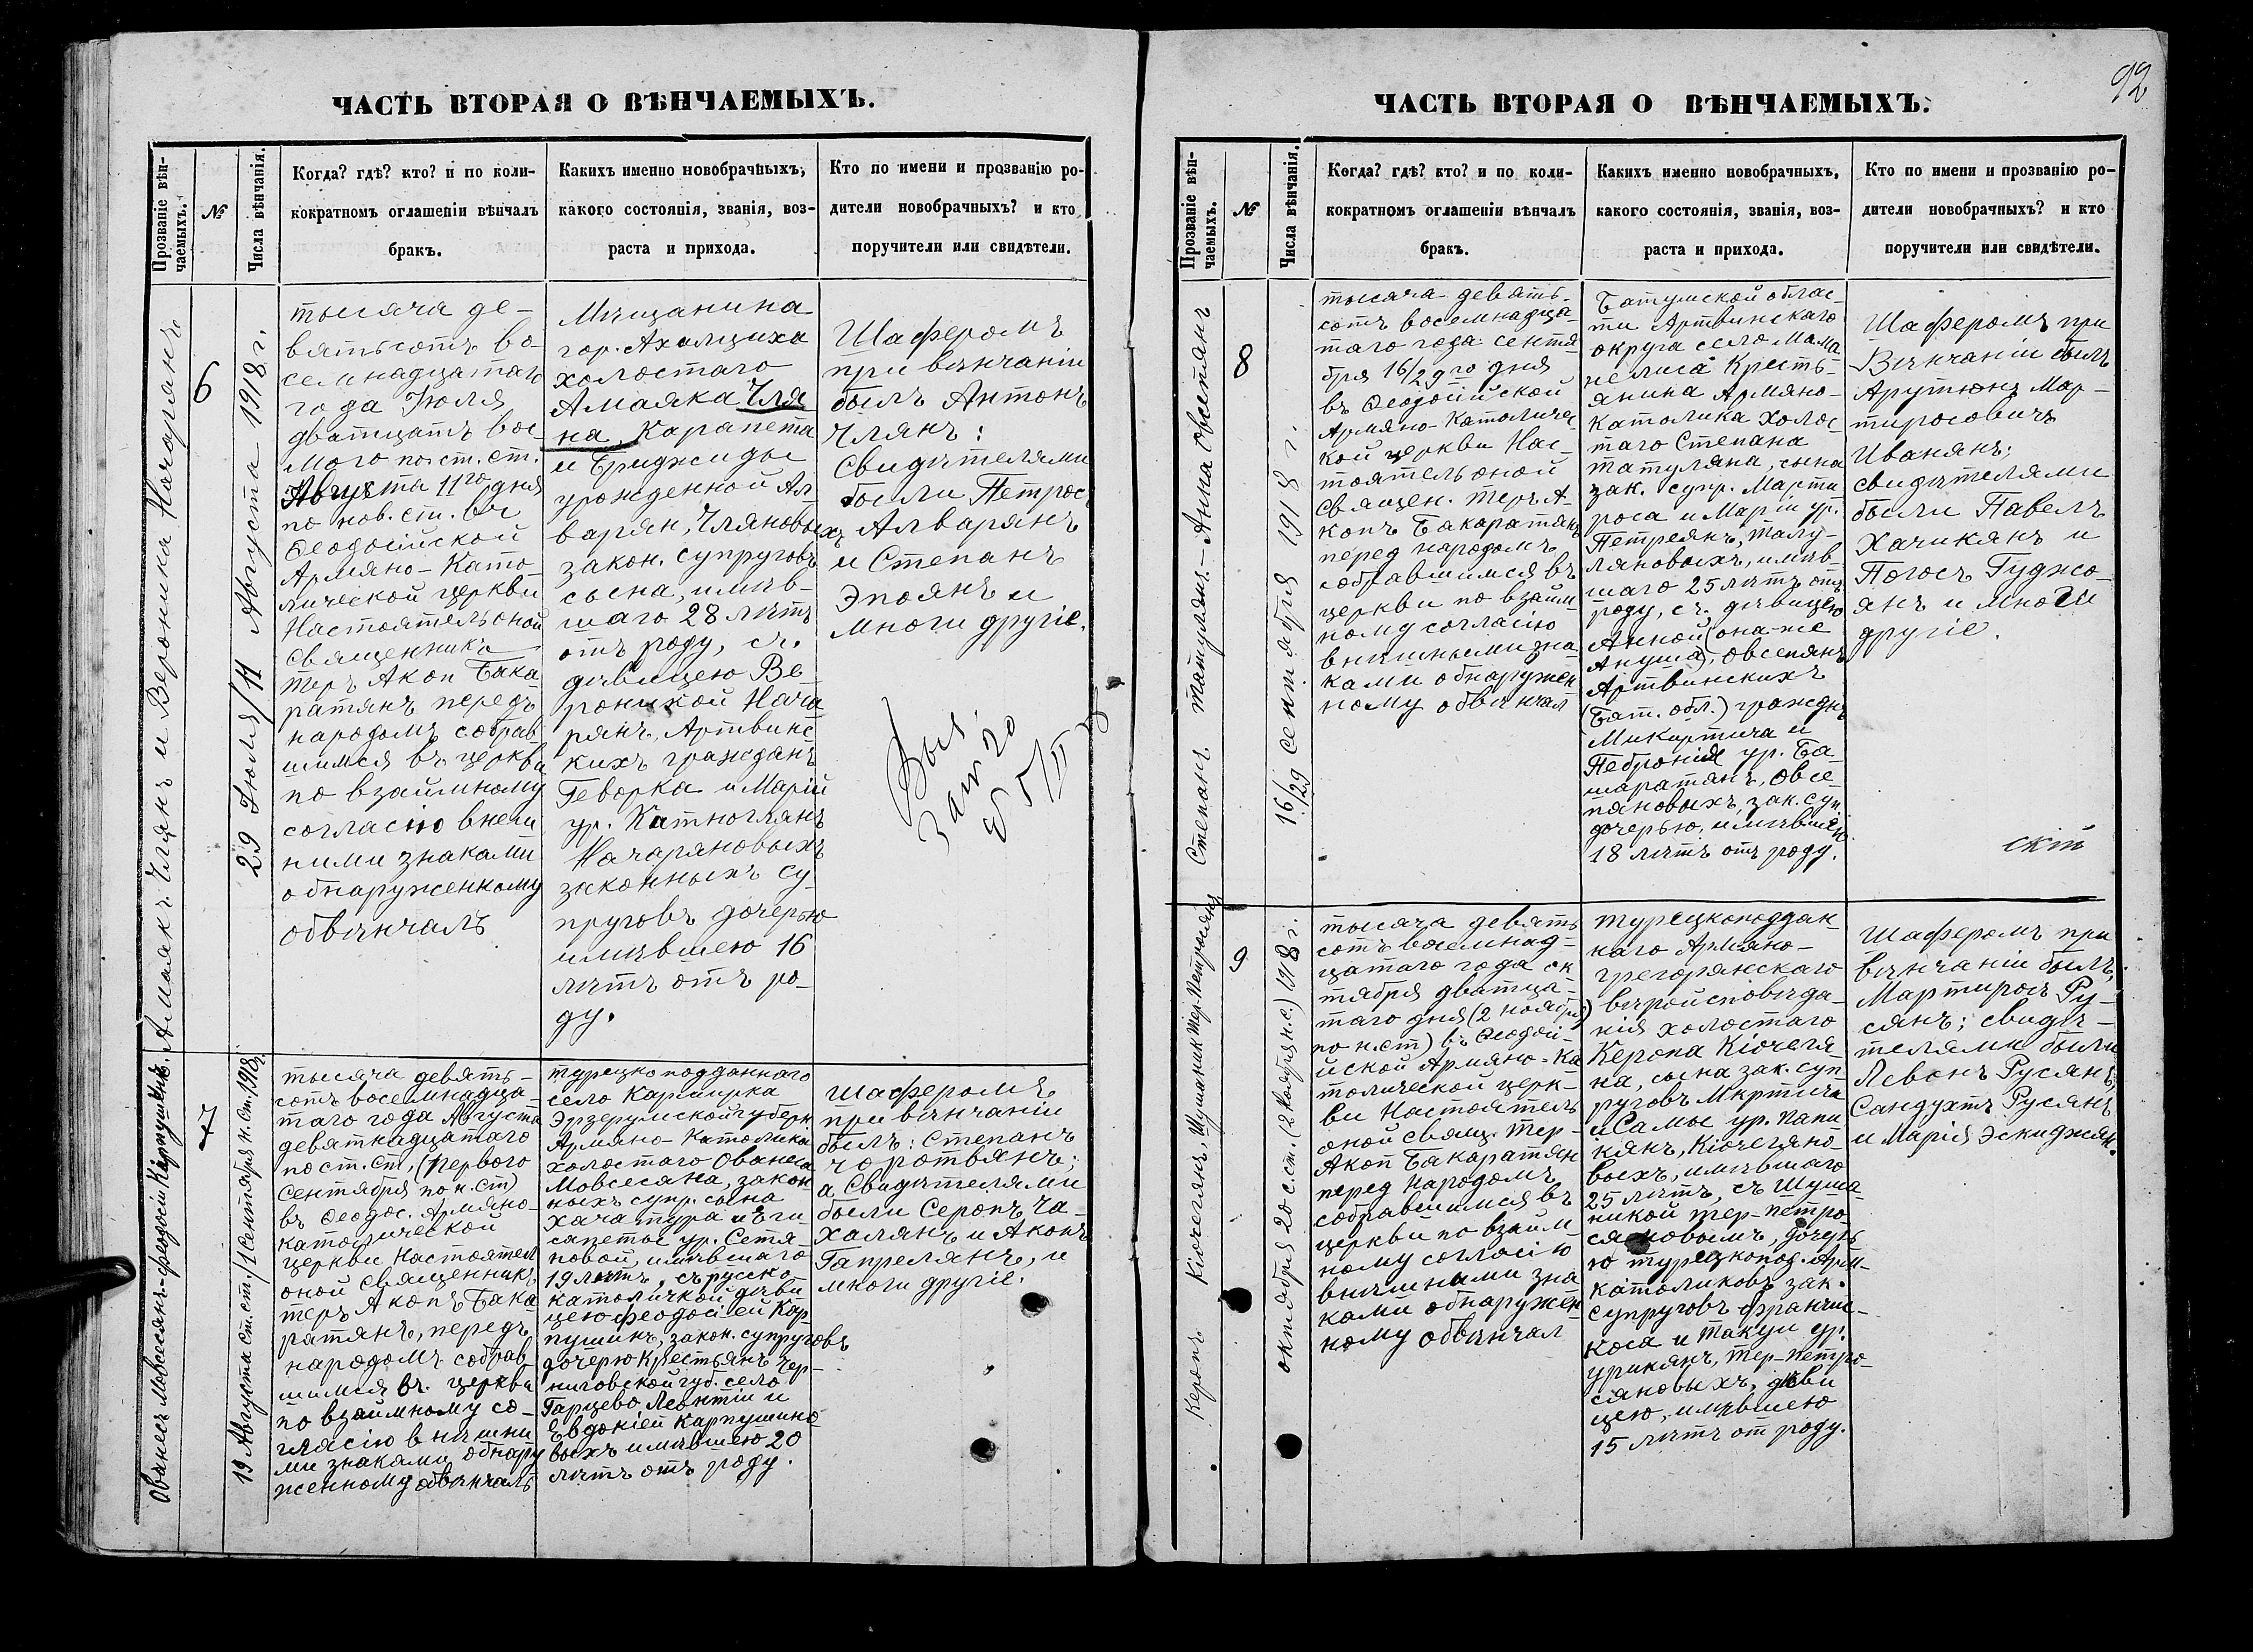 ЧАСТЬ ВТОРАЯ О ВѢНЧАЕМЫХЪ.
Прозваніе вѣн-
чаемыхъ.
№
Числа вѣнчанія.
Когда? гдѣ? кто? и по коли-
кократномъ оглашеніи вѣнчалъ
бракъ.
Какихъ именно новобрачныхъ,
какого состоянія, званія, воз-
раста и прихода.
Кто по имени и прозванію ро-
дители новобрачныхъ? и кто
поручители или свидѣтели.
Амаякъ Члянъ и Вероника Начарянъ
6
29 Іюля/11 Августа 1918 г.
тысяча де-
вятьсотъ во-
семнадцатаго
года Іюля
дватцать вос-
мого по ст. ст.
Августа 11го дня
по нов. ст. въ
Ѳеодосійской
Армяно-Като-
лической церкви
Настоятель оной
священникъ
теръ Акоп Бака
ратянъ передъ
народомъ собрав
шимся въ церкви
по взаимному
согласію внеш
ними знаками
обнаруженному
обвѣнчалъ
Мѣщанина
гор. Ахалциха
холостаго
Амаяка Чля
на, Карапета
и Бриджиды
урожденной Ал-
варян, Чляновы
хъ
закон. супруговъ
сына, имѣв-
шаго 28 лѣтъ
отъ роду, съ
дѣвицею Ве-
роникой Нача
рянъ, Артвинс
кихъ гражданъ
Геворка и Марій
ур. Катноглянъ
Начаряновыхъ
законныхъ су-
пруговъ дочерью
имѣвшею 16
лѣтъ отъ ро-
ду.
Шаферомъ
при вѣнчаніи
былъ Антонъ
Члянъ:
Свидѣтелями
были Петрос
Алварянъ
и Степанъ
Эпоянъ и
многи другіе.
Ованесъ Мовсесянъ-Феодосіи Карпушинъ.
7
19 Августа ст. ст./1 Сентября н. ст. 1918 г.
тысяча девять-
сотъ восемнадца-
таго года Августа
девятнадцатаго
по ст. ст, (первого
сентября по н. ст)
въ Ѳеодос. Армяно-
католической
церкви Настоятел
оной священникъ
теръ Акопъ Бака
ратянъ, передъ
народомъ собрав-
шимся въ церкви
по взаимному со-
гласію внѣшни
ми знаками обнару
женному обвѣнчалъ
турецкоподданнаго
село Кармирка
Эрзерумской губерн
Армяно-Католика
холостаго Ованеса
Мовсесяна, закон
ныхъ супр. сына
Хачатура и Еги-
сапеты ур. Сетя-
новой, имѣвшаго
19 лѣтъ, съ русско
католичкой дѣви
цею Феодосіей Кар
пушинъ, закон. супруговъ
дочерю крестьянъ Чер-
ниговской губ. село
Гарцево Леонтіи и
Евдокіей Карпушино
выхъ имѣвшею 20
лѣтъ отъ роду.
Шаферомъ
при вѣнчаніи
былъ: Степанъ
Чоротвянъ;
а Свидѣтелями
были Серопъ Ча-
халянъ и Акопъ
Гапрелянъ, и
многи другіе.
92
ЧАСТЬ ВТОРАЯ О ВѢНЧАЕМЫХЪ.
Прозваніе вѣн-
чаемыхъ.
№
Числа вѣнчанія.
Когда? гдѣ? кто? и по коли-
кократномъ оглашеніи вѣнчалъ
бракъ.
Какихъ именно новобрачныхъ,
какого состоянія, званія, воз-
раста и прихода.
Кто по имени и прозванію ро-
дители новобрачныхъ? и кто
поручители или свидѣтели.
Степанъ Татулянъ-Анна Овсепянъ
8
16/29 сентября 1918 г.
тысяча девять-
сотъ восемнадца-
таго года сентя
бря 16/29го дня
въ Ѳеодосійской
Армяно-Католичес
кой церкви Нас-
тоятель оной
священ. Теръ А-
копъ Бакаратянъ
перед народомъ
собравшимся въ
церкви по взаим
ному согласію
внѣшными зна
ками обнаружен
ному обвѣнчал
Батумской облас-
ти Артвинскаго
округа село Мама
нелиса кресть-
янина Армяно-
Католика холос-
таго Степана
Татуляна, сына
зак. супр. Марти
роса и Маріи ур.
Петреянъ, Тату-
ляновыхъ, имѣв-
шаго 25 лѣтъ отъ
роду, съ дѣвицею
Анной (она-же
Ануша), Овсепянъ
Артвинскихъ
(Бат. обл.) граждан
Микиртича и
Пебронія ур. Ба-
шаратянъ, Овсе-
пяновыхъ, зак. суп.
дочерью, имѣвшей
18 лѣтъ отъ роду.
Шаферомъ при
Вѣнчаніи былъ
Арутюнъ Мар-
тиросовичъ
Иванянъ;
свидѣтелями
были Павелъ
Хачикянъ и
Погосъ Гуджо-
янъ и многи
другіе.
Керопъ Кіочегянъ-Шушаник Тер-Петросянцъ
9
октября 20 с. ст. (2 ноября н. с.) 1918 г.
тысяча девять
сотъ восемнад-
цатаго года ок
тября дватца-
таго дня (2 ноября)
по н. ст) въ Ѳеодос-
йской Армяно-Ка
толической церк-
ви Настоятель
оной свящ. Тер-
Акоп Бакаратян
перед народомъ
собравшимся въ
церкви по взаим
ному согласію
внѣшными зна
ками обнаружен
ному обвѣнчал
турецкоподдан
наго Армяно-
грегорянскаго
вѣройсповѣда-
нія холостаго
Керопа Кіочегя-
на, сына зак. суп
руговъ Мкртича
и Самы ур. Папи
кянъ, Кіочегяно-
выхъ, имѣвшаго
25 лѣтъ, съ Шуша
никой Тер-Петро-
сяновымъ, дочерь
ю турецкопод. Арм-
католиковъ зак.
супруговъ Франчис-
коса и Такуи ур.
Урикянъ, Тер-Петро-
сяновыхъ, дѣви
цею, имѣвшею
15 лѣтъ от роду.
Шаферомъ при
вѣнчаніи былъ,
Мартиросъ Ру-
сянъ; свидѣ-
телями были
Левонъ Русянъ
Сандухтъ Русянъ
и Марія Эскиджян.